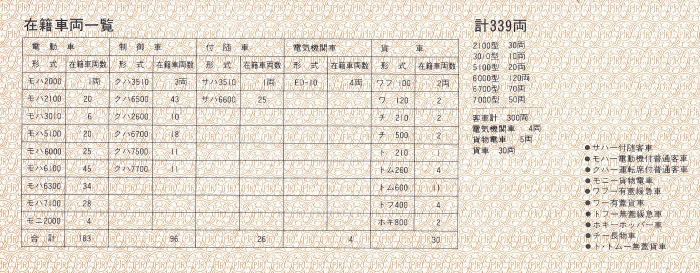 在籍車両一覧
計339両
電動車 制御車 付随車 電気機関車 貨車
形式 在籍車両数 形式 在籍車両数 形式 在籍車両数 形式 在籍車両数 形式 在籍車両数
モハ2000 1両 クハ3510 3両 サハ3510 1両 ED-10 4両 ワフ100 2両
モハ2100 20 クハ6500 43 サハ6600 25 ワ120 2
モハ3010 6 クハ2600 10 チ210 2
モハ5100 20 クハ6700 18 チ500 2
モハ6000 25 クハ7500 11 ト210 1
モハ6100 45 クハ7700 11 トム260 4
モハ6300 34 トム600 11
モハ7100 28 トフ400 4
モニ2000 4 ホキ800 2
合計 183 96 26 4 30
2100型 30両
3010型 10両
5100型 20両
6000型 120両
6700型 70両
7000型 50両
客車計 300両
電気機関車 4両
貨物電車 5両
貨車 30両
●サハー付随客車
●モハー電動機付普通客車
●クハー運転席付普通客車
●モニー貨物電車
●ワフー有蓋緩急車
●ワー有蓋貨車
●トフー無蓋緩急車
●ホキーホッパー車
●チー長物車
●ト・トムー無蓋貨車